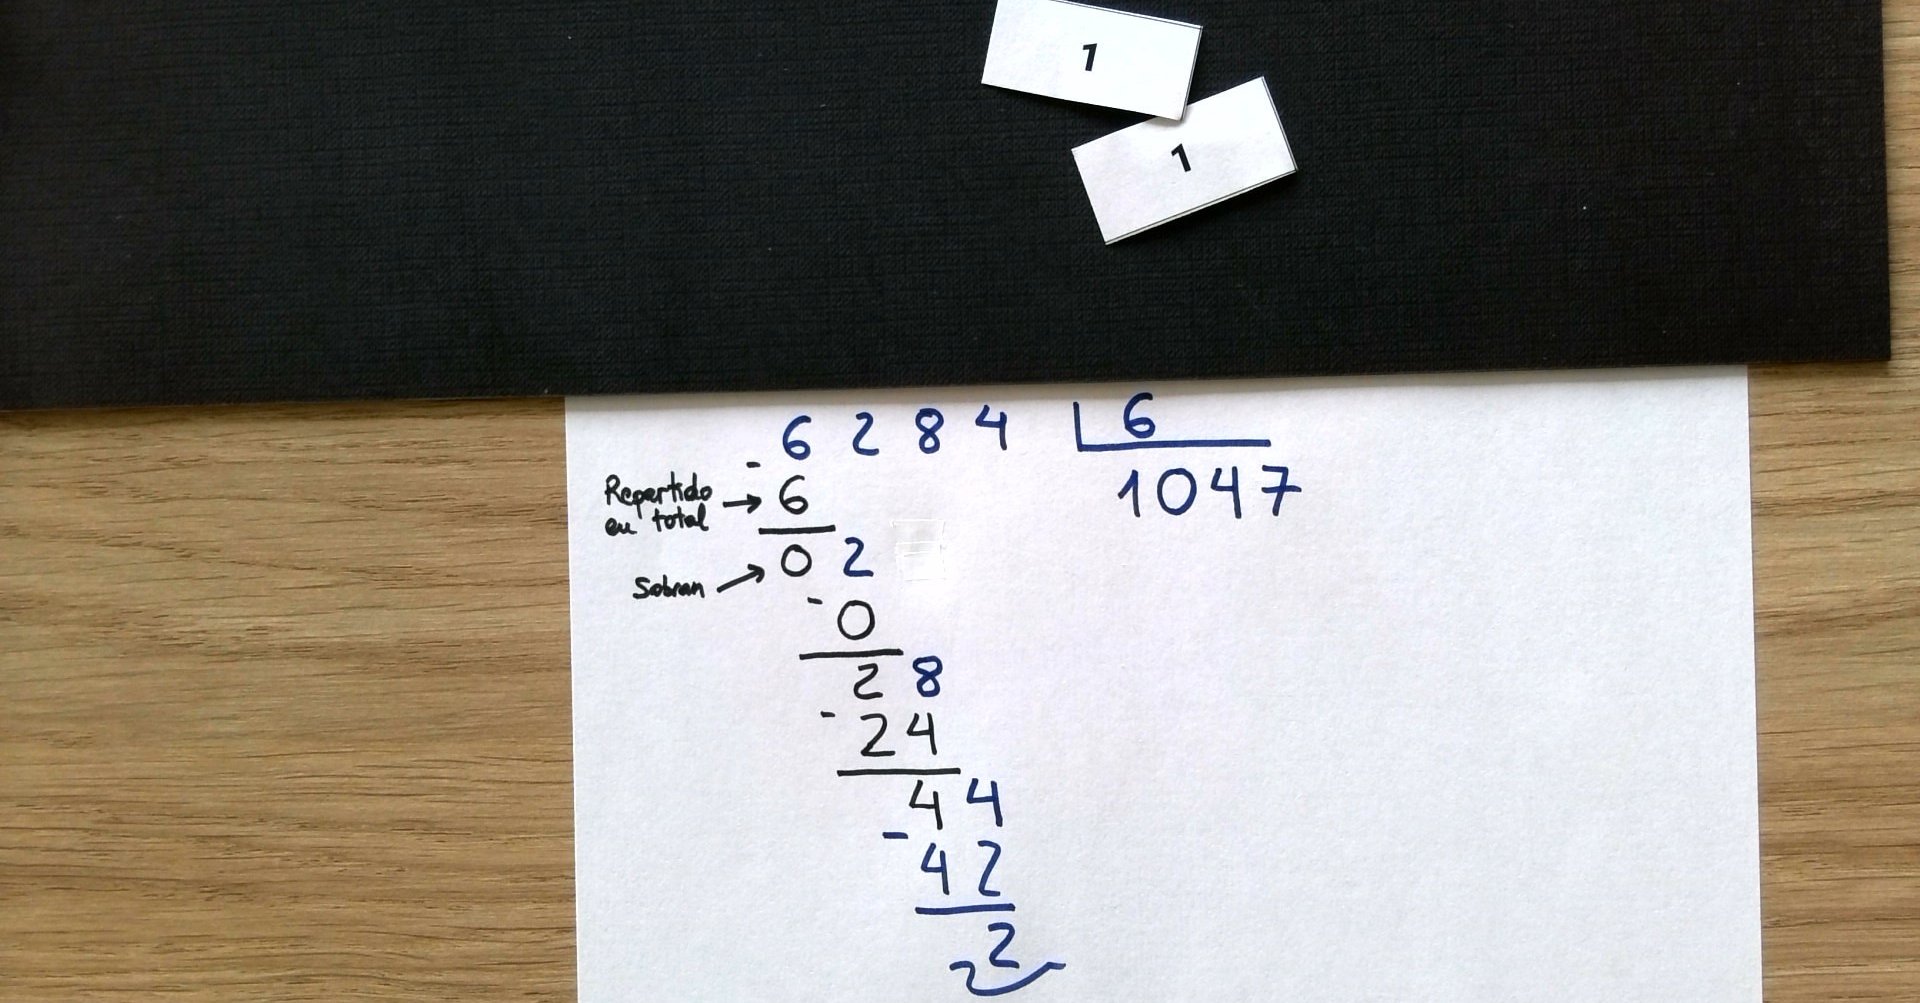 1
1
6 2 8 4 6
1047
- 6
Repartido
en total
0 2
Sobran
- 0
2 8
- 24
4 4
- 42
2